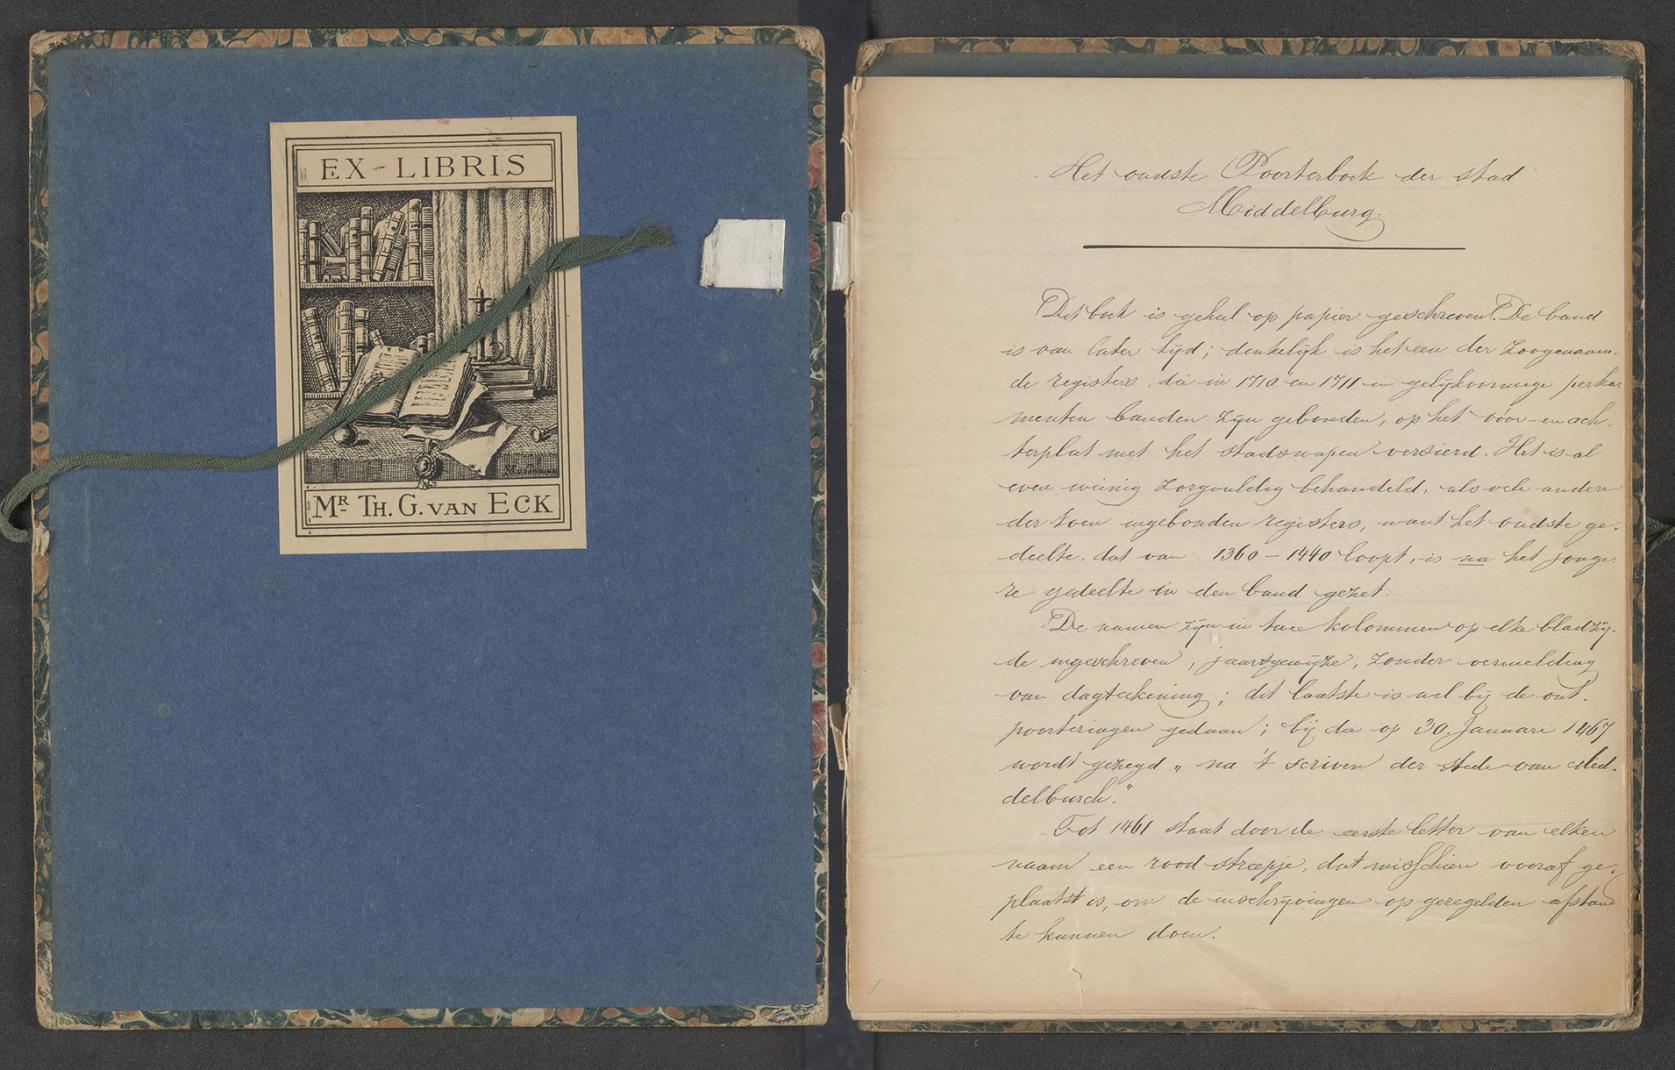 EX-LIBRIS
Mr TH. G. VAN ECK
Het oudste Poorterboek der stad
Middelburg.
Dit boek is geheel op papier geschreven. De band
is van later tijd; denkelijk is het een der zoogenaam-
de registers, die in 1710 en 1711 in gelijkvormige perka
menten banden zijn gebonden, op het vóór- en ach-
terplat met het stadswapen versierd. Het is al
even weinig zorgvuldig behandeld, als vele andere
der toen ingebonden registers, want het oudste ge-
deelte, dat van 1360-1440 loopt, is na het jonge-
re gedeelte in den band gezet.
De namen zijn in twee kolommen op elke bladzij-
de ingeschreven, jaarsgewijze, zonder vermelding
van dagteekening; dit laatste is wel bij de ont-
poorteringen gedaan; bij die op 30 Januari 1467
wordt gezegd „na 't scriven der stede van Med-
delburch."
Tot 1461 staat door de eerste letter van elken
naam een rood streepje, dat misschien vooraf ge-
plaatst is, om de inschrijvingen op geregelden afstand
te kunnen doen.